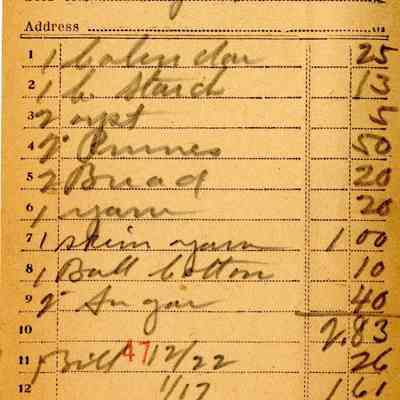 Address
1 1 Calendar 25
2 1 b Starch 13
3 2 5
4 2 Prunes 50
5 2 Bread 20
6 1 yarn 20
7 1 skein yarn 1 00
8 1 Ball Cotton 10
9 2 Sugar 40
10 2.83
11 Bill 47 12/22 26
12 1/17 1 61